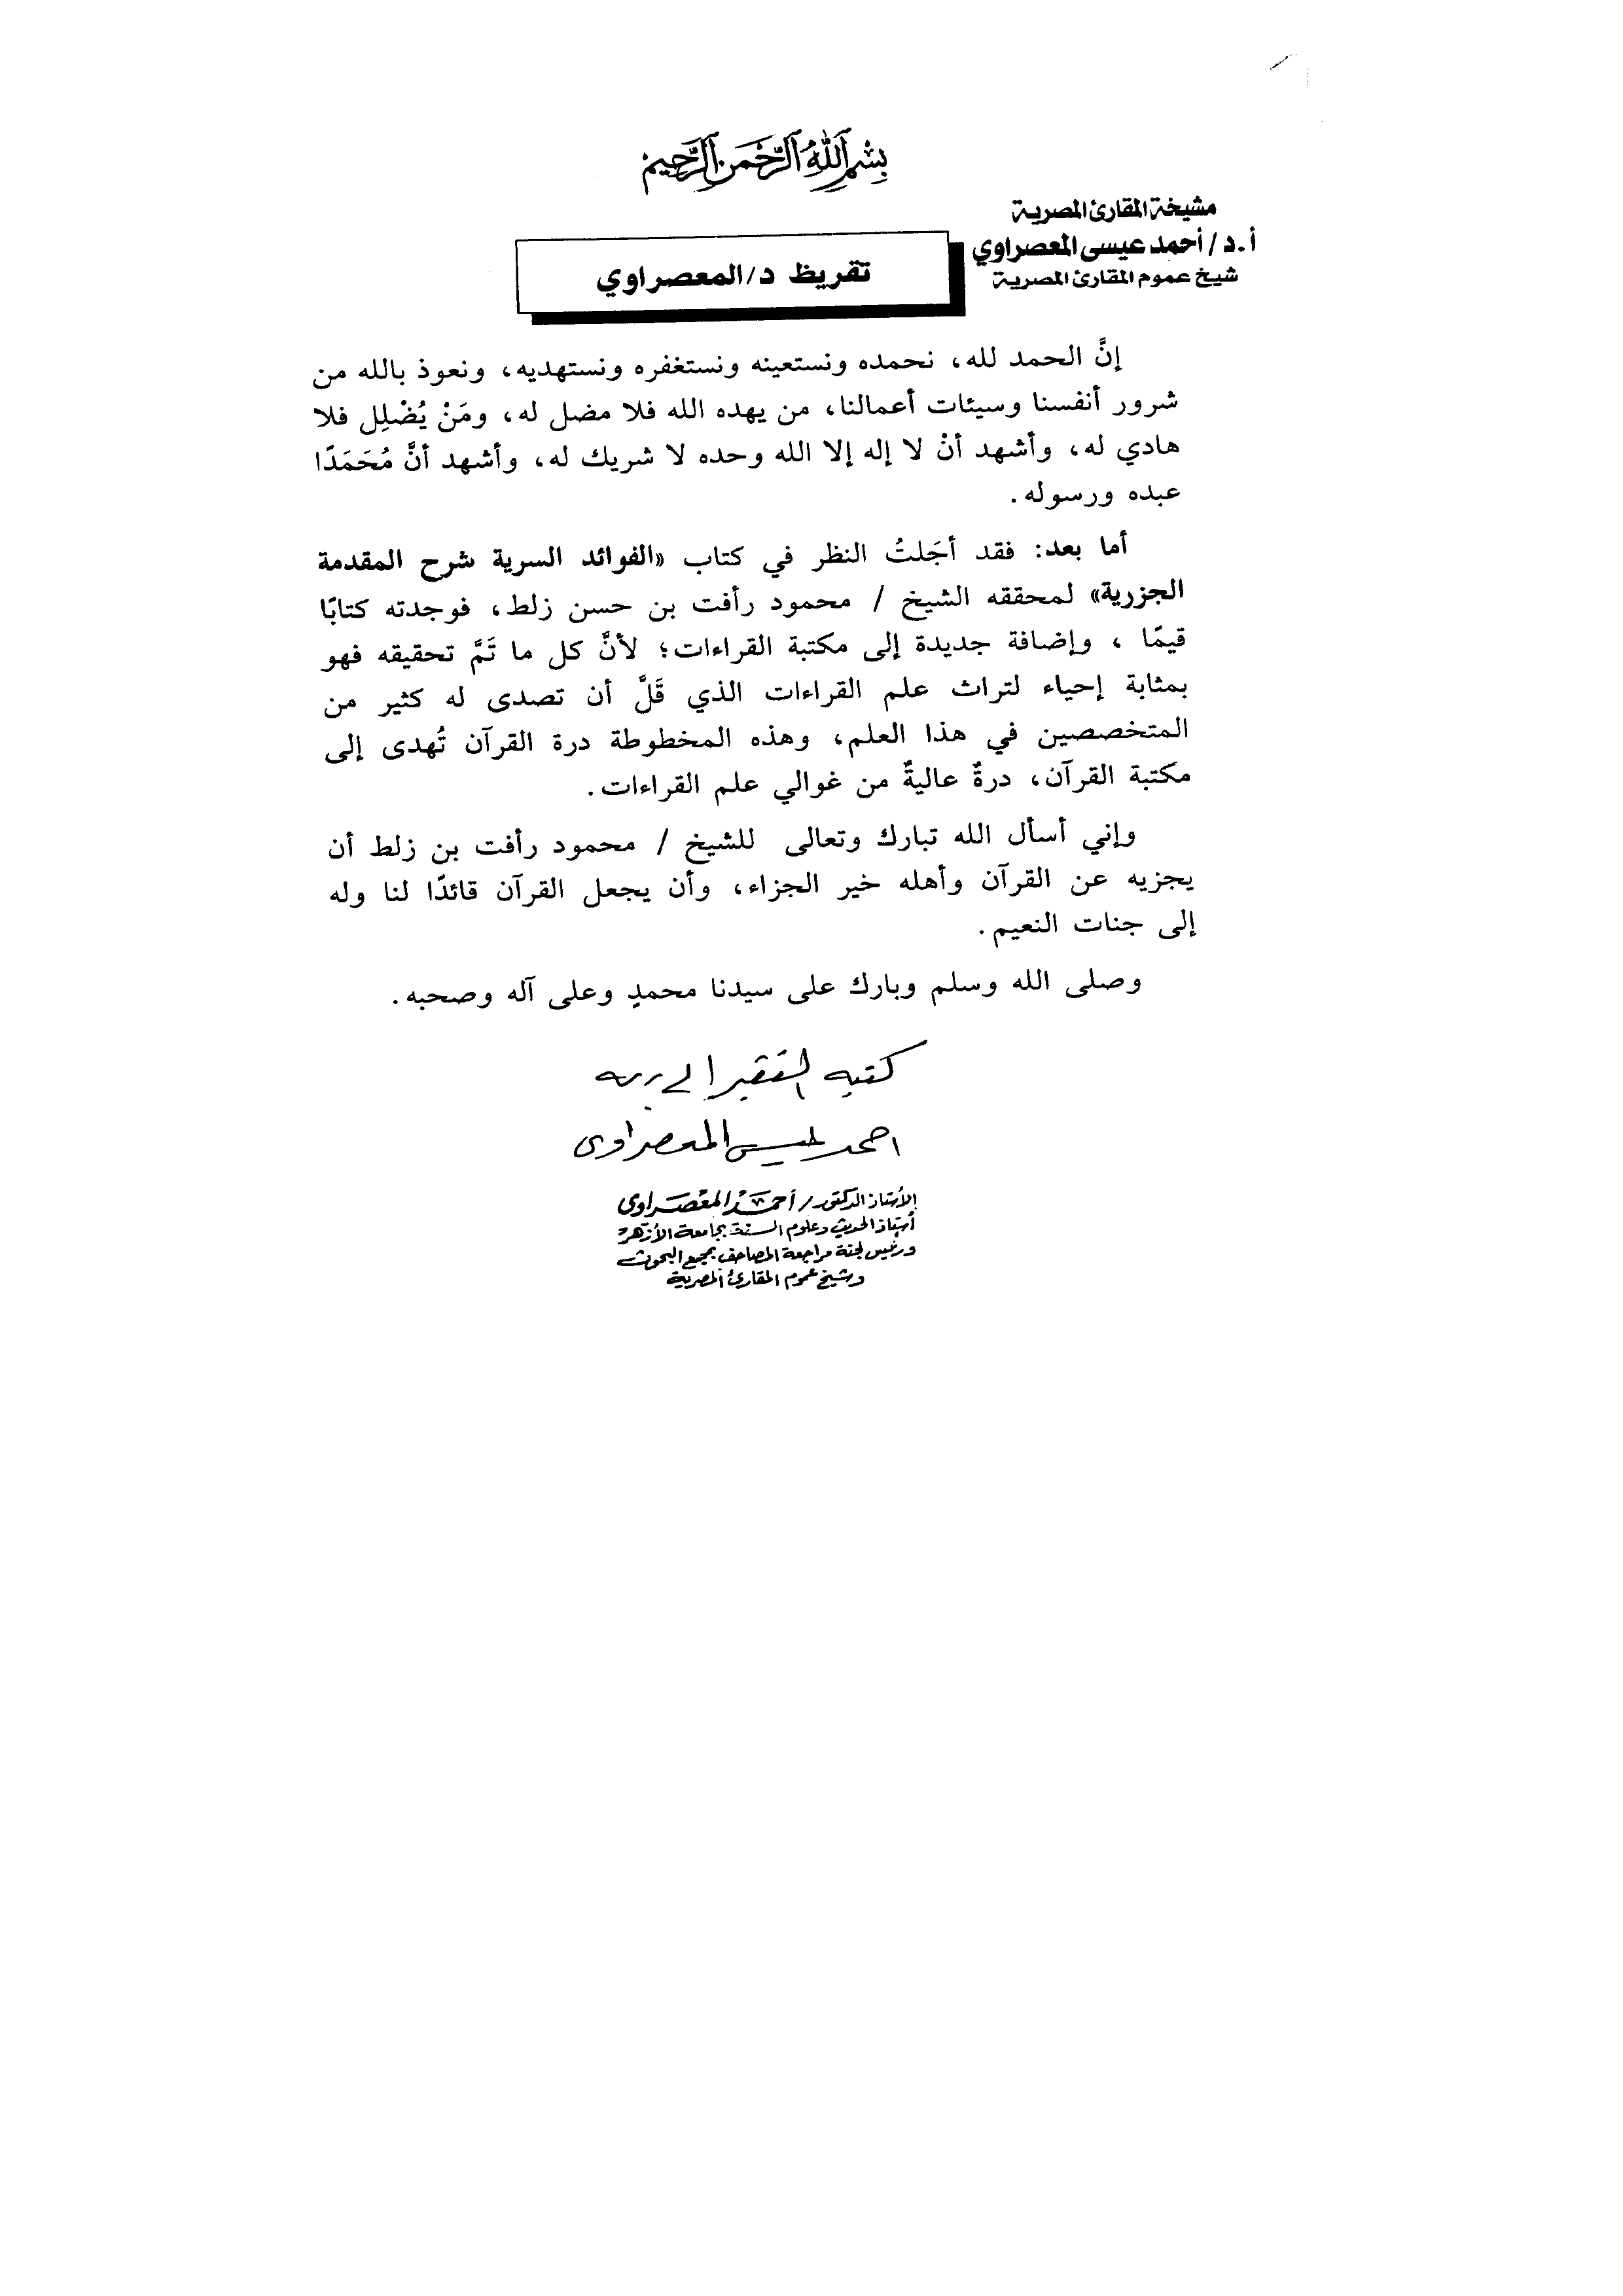 بسم الله الرحمن الرحيم
مشيخة المقارئ المصرية
أ.د/أحمد عيسى المعصراوي
شيخ عموم المقارئ المصرية
تقريظ د/المعصراوي
إنَّ الحمد لله، نحمده ونستعينه ونستغفره ونستهديه، ونعوذ بالله من
شرور أنفسنا وسيئات أعمالنا، من يهده الله فلا مضل له، ومَنْ يُضْلِل فلا
هادي له، وأشهد أنْ لا إله إلا الله وحده لا شريك له، وأشهد أنَّ مُحَمَدًا
عبده ورسوله.
أما بعد: فقد أجَلتُ النظر في كتاب «الفوائد السرية شرح المقدمة
الجزرية» لمحققه الشيخ / محمود رأفت بن حسن زلط، فوجدته كتابًا
قيمًا ، وإضافة جديدة إلى مكتبة القراءات؛ لأنَّ كل ما تَمَّ تحقيقه فهو
بمثابة إحياء لتراث علم القراءات الذي قَلَّ أن تصدى له كثير من
المتخصصين في هذا العلم، وهذه المخطوطة درة القرآن تُهدى إلى
مكتبة القرآن، درةٌ عاليةٌ من غوالي علم القراءات.
وإني أسأل الله تبارك وتعالى للشيخ / محمود رأفت بن زلط أن
يجزيه عن القرآن وأهله خير الجزاء، وأن يجعل القرآن قائدًا لنا وله
إلى جنات النعيم.
وصلى الله وسلم وبارك على سيدنا محمدٍ وعلى آله وصحبه.
كتبه الفقير إلى ربه
احمد عيسى المعصراوى
الأستاذ الدكتور/ أحمد المعصراوى
أستاذ الحديث وعلوم السنة بجامعة الأزهر
ورئيس لجنة مراجعة المصاحف بمجمع البحوث
وشيخ عموم المقارئ المصرية